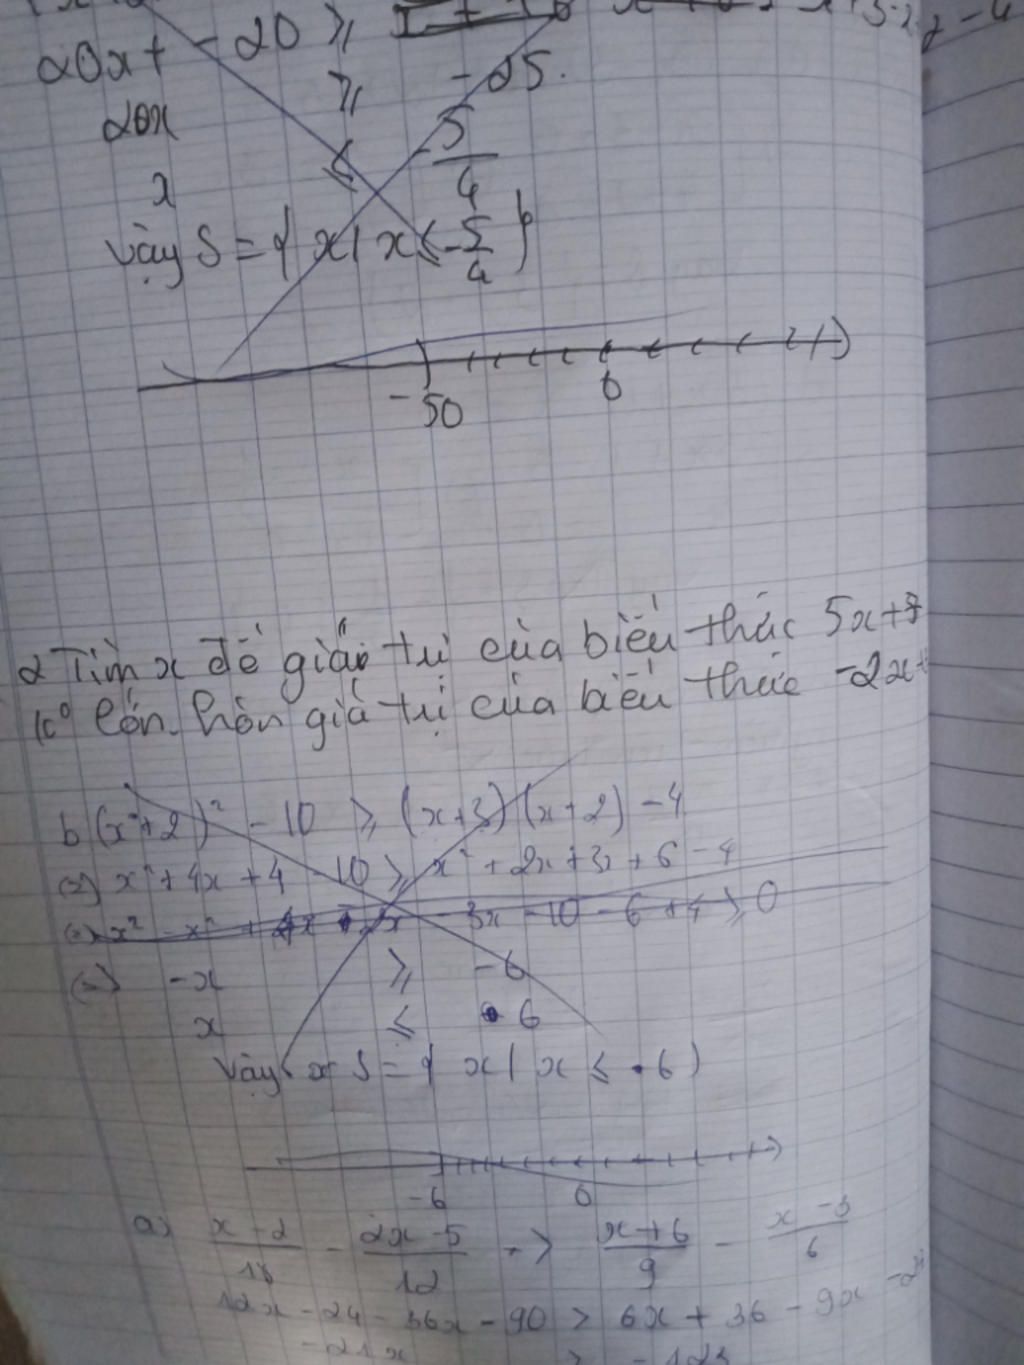 20x + - 20 ≥
20x ≥ - 25.
x ≤ - 5/4
Vậy S = { x | x ≤ - 5/4 }
- 50 0
2 Tìm x để giá trị của biểu thức 5x+7
ko lớn hơn giá trị của biểu thức -2x+
b (x+2)² - 10 ≥ (x+3) (x+2) - 4
(=) x² + 4x + 4 - 10 ≥ x² + 2x + 3x + 6 - 4
(=) x² - x² + 4x - 2x - 3x - 10 - 6 + 4 ≥ 0
(=) - x ≥ - 6
x ≤ 6
Vậy x S = { x | x ≤ 6 )
- 6 0
a) x - 2/18 - 2x - 5/12 > x + 6/9 - x - 3/6
12x - 24 - 36x - 90 > 6x + 36 - 9x - 2
- 21x > - 123